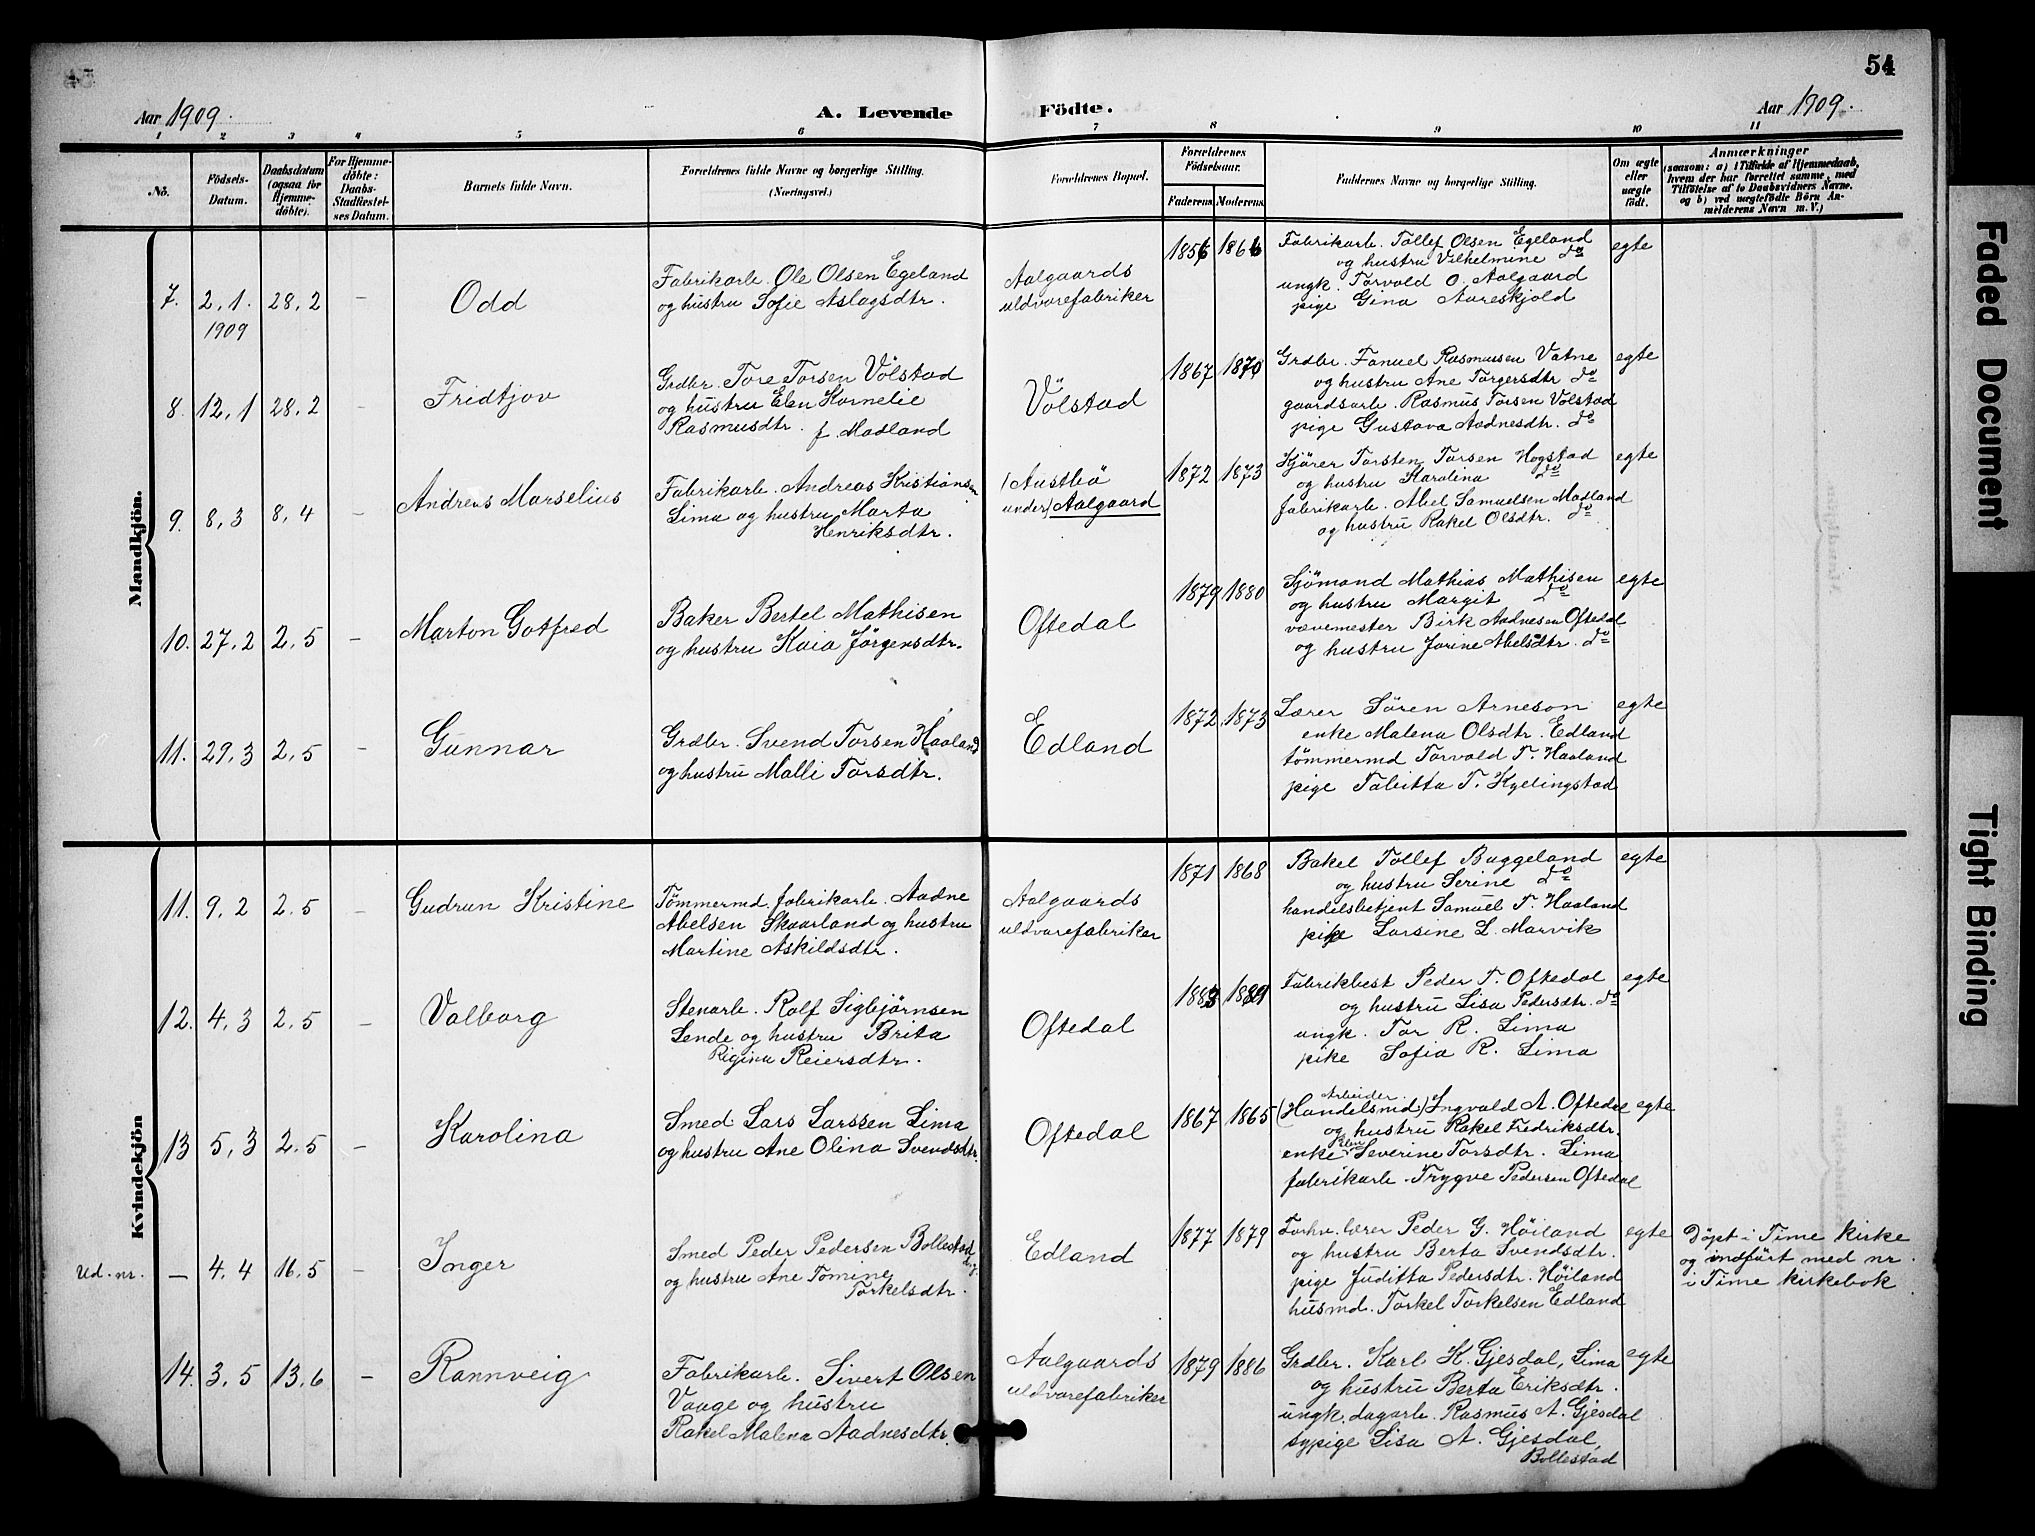 54
Aar 1909.
A. Levende Födte.
Aar 1909.
1 2 3 4 5 6 7 8 9 10 11
No.
Födsels-Datum.
Daabsdatum (ogsaa for Hjemme-döbte).
For Hjemme-döbte: Daabs-Stadfæstel-ses Datum.
Barnets fulde Navn.
Forældrenes fulde Navne og borgerlige Stilling.
(Næringsvei.)
Forældrenes Bopæl.
Forældrenes Födselsaar.
Faderens. Moderens.
Faddernes Navne og borgerlige Stilling.
Om ægte eller uægte födt.
Anmærkninger
(saasom: a) i Tilfælde af Hjemmedaab,
hvem der har forrettet samme, med
Tilföielse af to Daabsvidners Navne.
og b) ved uægtefödte Börn An-
melderens Navn m. V.)
Mandkjön.
7. 2,1. 1909 28,2 - Odd
Fabrikarb. Ole Olsen Egeland
og hustru Sofie Aslagsdtr.
Aalgaards
uldvarefabriker
1856 1866
Fabrikarb. Tollef Olsen Egeland
og hustru Vilhelmine do
ungk. Torvald O. Aalgaard
pige Gina Aareskjold
egte
8. 12,1 28,2 - Fridtjov
Grdbr. Tore Torsen Völstad
og hustru Elen Kornelie
Rasmusdtr. f. Madland
Völstad
1867 1870
Grdbr. Fanuel Rasmussen Vatne
og hustru Ane Torgersdtr do
gaardsarb. Rasmus Torsen Volstad
pige Gustava Aadnesdtr. do
egte
9. 8,3 8,4 Andreas Marselius
Fabrikarb. Andreas Kristiansen
Lima og hustru Marta
Henriksdtr.
(Austbö
under) Aalgaard
1872 1873
Kjörer Torsten Torsen Hogstad
og hustru Karolina do
fabrikarb. Abel Samuelsen Madland
og hustru Rakel Olsdtr. do
egte
10. 27,2 2,5 - Marton Gotfred
Baker Bertel Mathisen
og hustru Kaia Jörgensdtr.
Oftedal
1879 1880
Sjömand Mathias Mathisen
og hustru Margit do
vævemester Birk Aadnesen Oftedal
og hustru Jorine Abelsdtr. do
egte
11. 29,3 2,5 - Gunnar
Grdbr. Svend Torsen Haaland
og hustru Malli Torsdtr.
Edland
1872 1873
Lærer Sören Arneson
enke Malena Olsdtr. Edland
tömmermd Torvald T. Haaland
pige Tabitta T. Kyllingstad
egte
Kvindekjön
11. 9,2 2,5 - Gudrun Kristine
Tömmermd. fabrikarb. Aadne
Abelsen Skaarland og hustru
Martine Askildsdtr.
Aalgaards
uldvarefabriker
1871 1868
Bakel Tollef Buggeland
og hustru Serine do
handelsbetjent Samuel T. Haaland
pike Larsine L. Marvik
egte
12. 4,3 2,5 - Valborg
Stenarb. Rolf Sigbjörnsen
Lende og hustru Brita
Rigina Reiersdtr.
Oftedal
1883 1889
Fabrikbest Peder T. Oftedal
og hustru Lisa Pedersdtr. do
ungk. Tor R. Lima
pike Sofia R. Lima
egte
13 5,3 2,5 - Karolina
Smed Lars Larssen Lima
og hustru Ane Olina Svendsdtr.
Oftedal
1867 1865
Arbeider
(Handelsmd) Ingvald A. Oftedal
og hustru Rakel Fredriksdtr.
enke Elen Severine Torsdtr. Lima
fabrikarb. Trygve Pedersen Oftedal
egte
Ud. nr. - 4,4 16,5 - Inger
Smed Peder Pedersen Bollestad
og hustru Ane Tomine
Torkelsdtr.
Edland
1877 1879
Forhv. lærer Peder G. Höiland
og hustru Berta Svendsdtr.
pige Juditta Pedersdtr. Höiland
husmd. Torkel Torkelsen Edland
egte
Döpt i Time kirke
og indfört med nr.
i Time kirkebok
14. 3,5 13,6 - Rannveig
Fabrikarb. Sivert Olsen
Vaage og hustru
Rakel Malena Aadnesdtr.
Aalgaards
uldvarefabriker
1879 1886
Grdbr. Karl K. Gjesdal, Lima
og hustru Berta Eriksdtr.
ungk. dagarb. Rasmus A. Gjesdal
sypige Lisa A. Gjesdal,
Bollestad
egte
Faded Document
Tight Binding